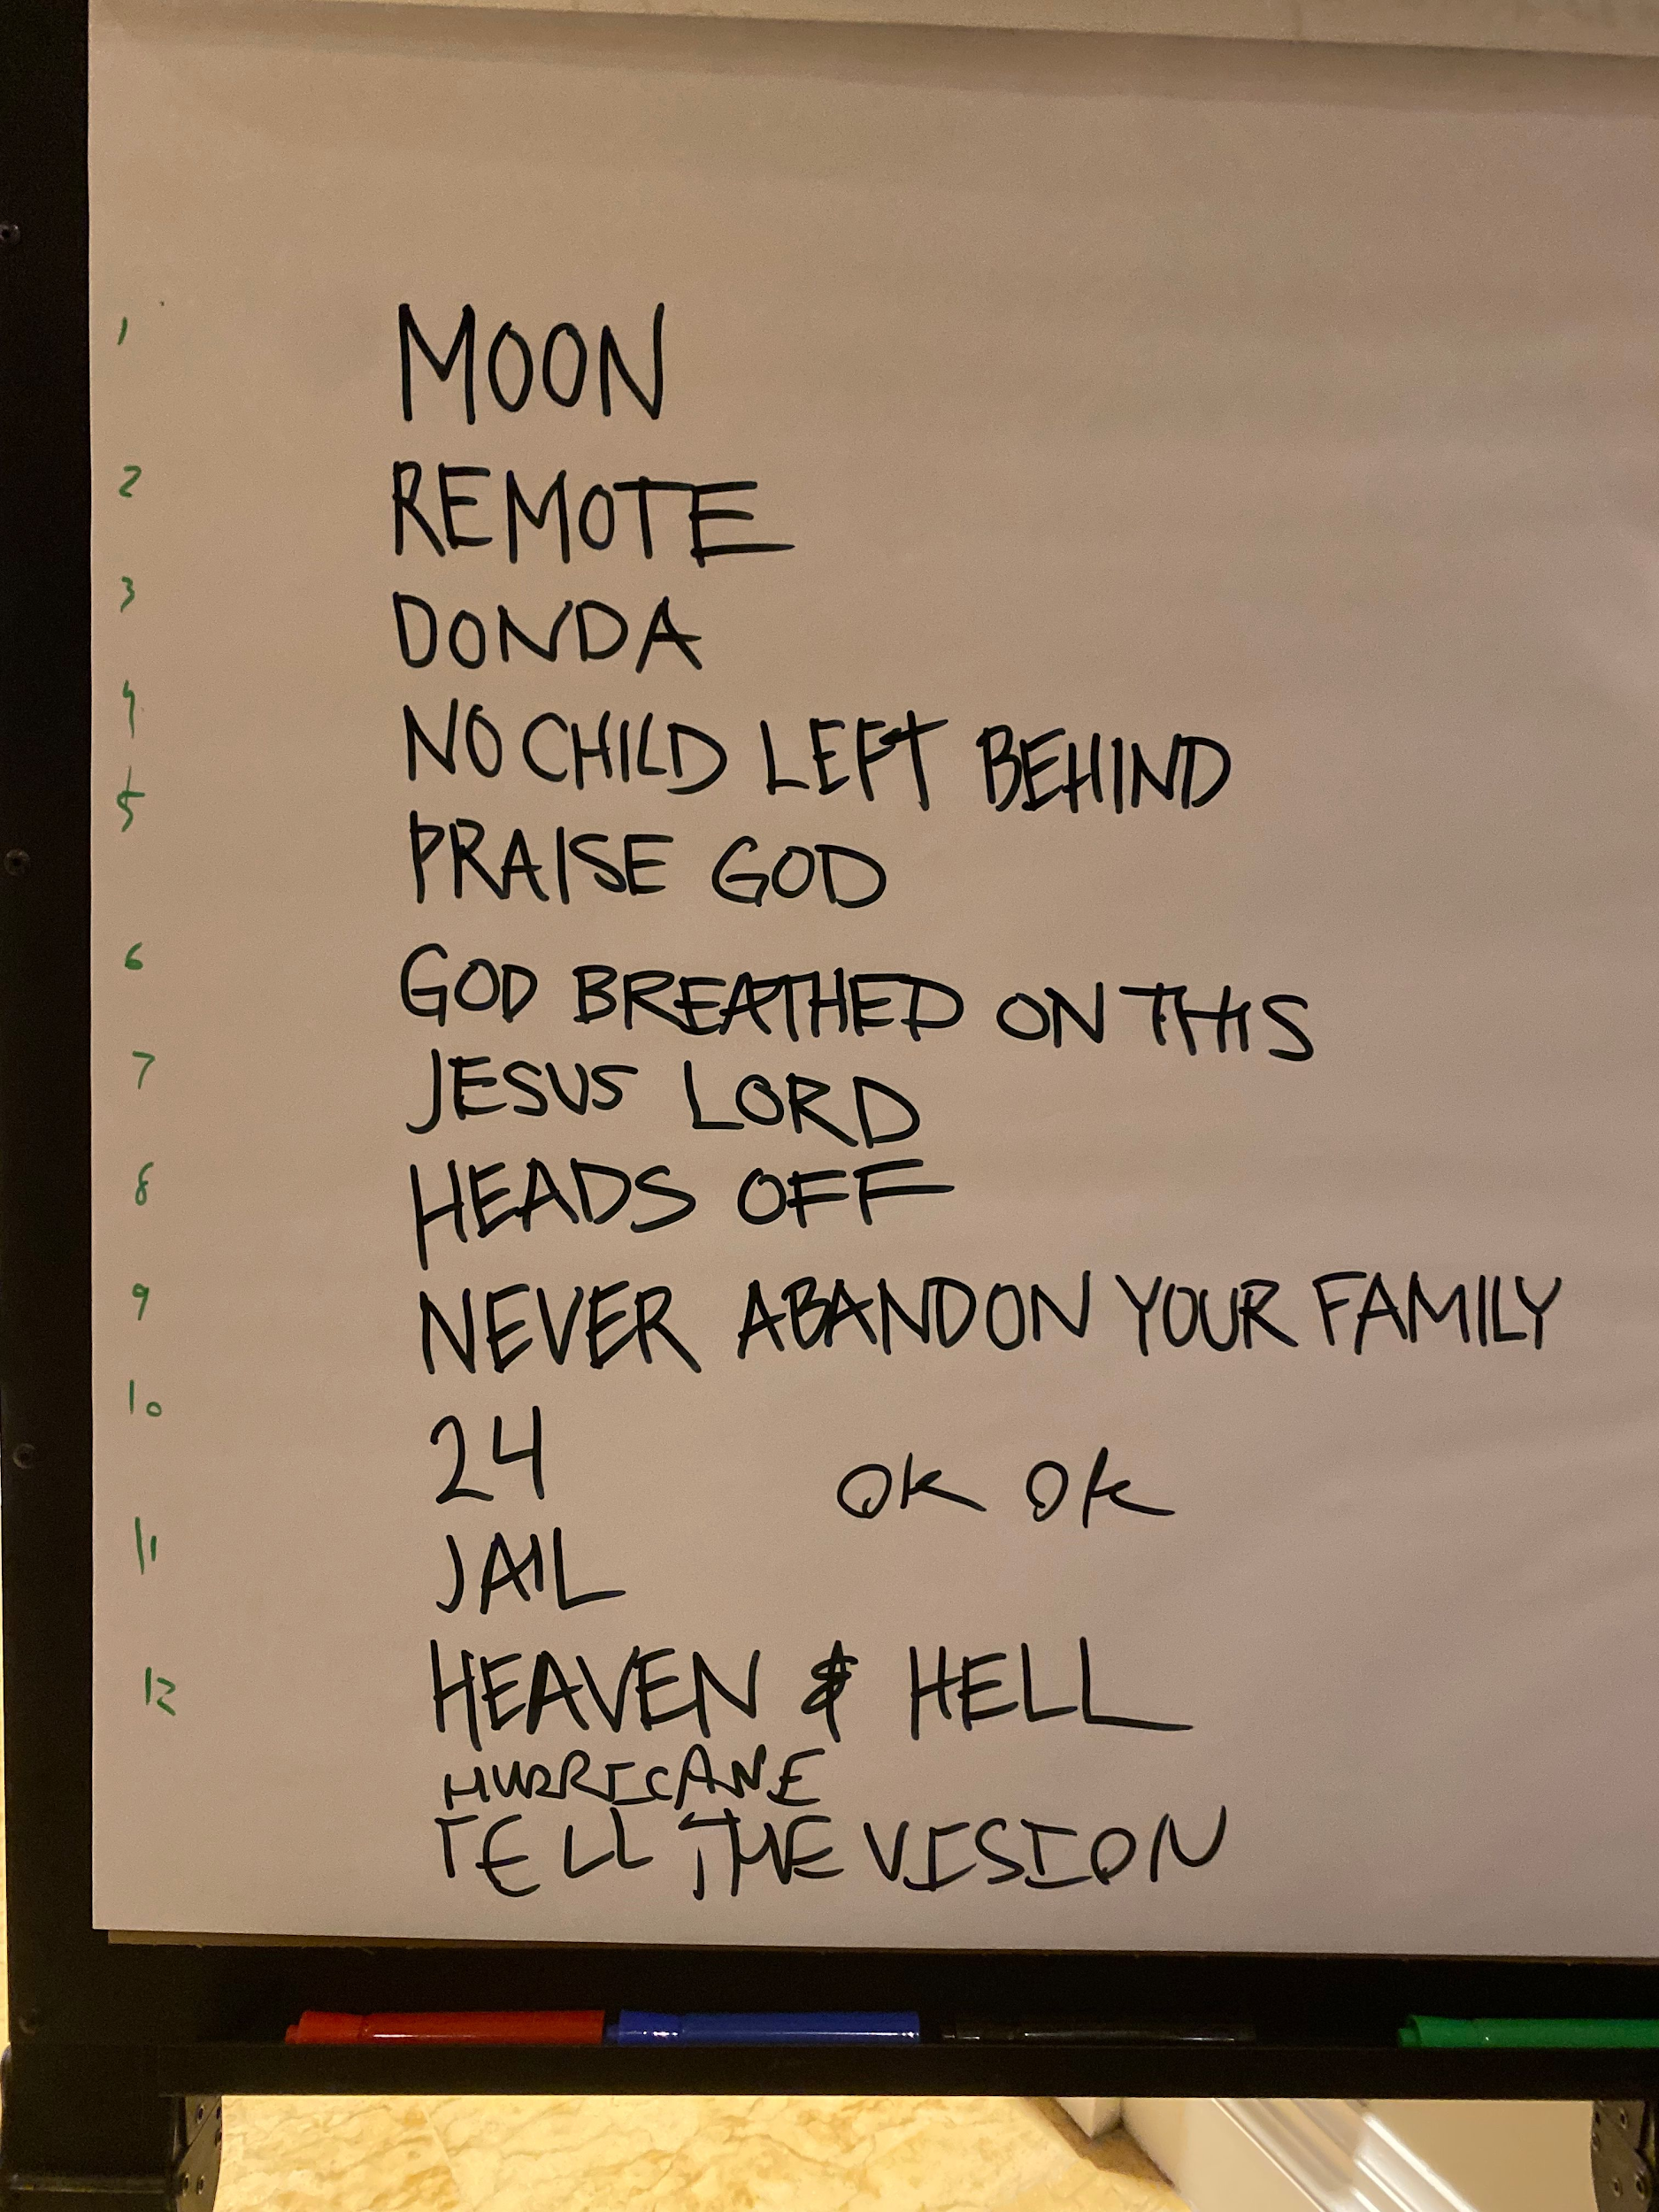 1 MOON
2 REMOTE
3 DONDA
4 NO CHILD LEFT BEHIND
5 PRAISE GOD
6 GOD BREATHED ON THIS
7 JESUS LORD
8 HEADS OFF
9 NEVER ABANDON YOUR FAMILY
10 24 OK OK
11 JAIL
12 HEAVEN & HELL
HURRICANE
TELL THE VISION